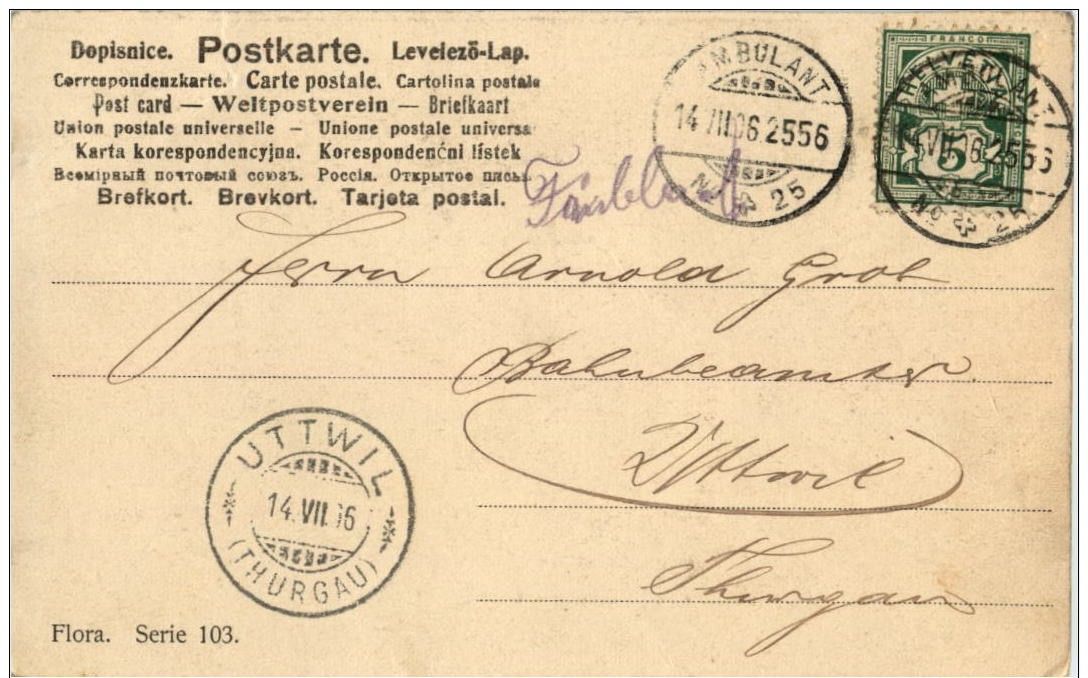 Dopisnice. Postkarte. Levelező-Lap.
Correspondenzkarte. Carte postale. Cartolina postale
Post card — Weltpostverein — Briefkaart
Union postale universelle — Unione postale universa
Karta korespondencyjna. Korespondenční lístek
Всемірный почтовый союзъ. Россія. Открытое письм
Brefkort. Brevkort. Tarjeta postal.
AMBULANT
14 VII 06. 2556
No 25
FRANCO
HELVETIA
5
14 VII 06. 2556
No 25
Herrn Arnold Grob
Bahnbeamter
Uttwil
Thurgau
UTTWIL
14. VII. 06
(THURGAU)
Flora. Serie 103.